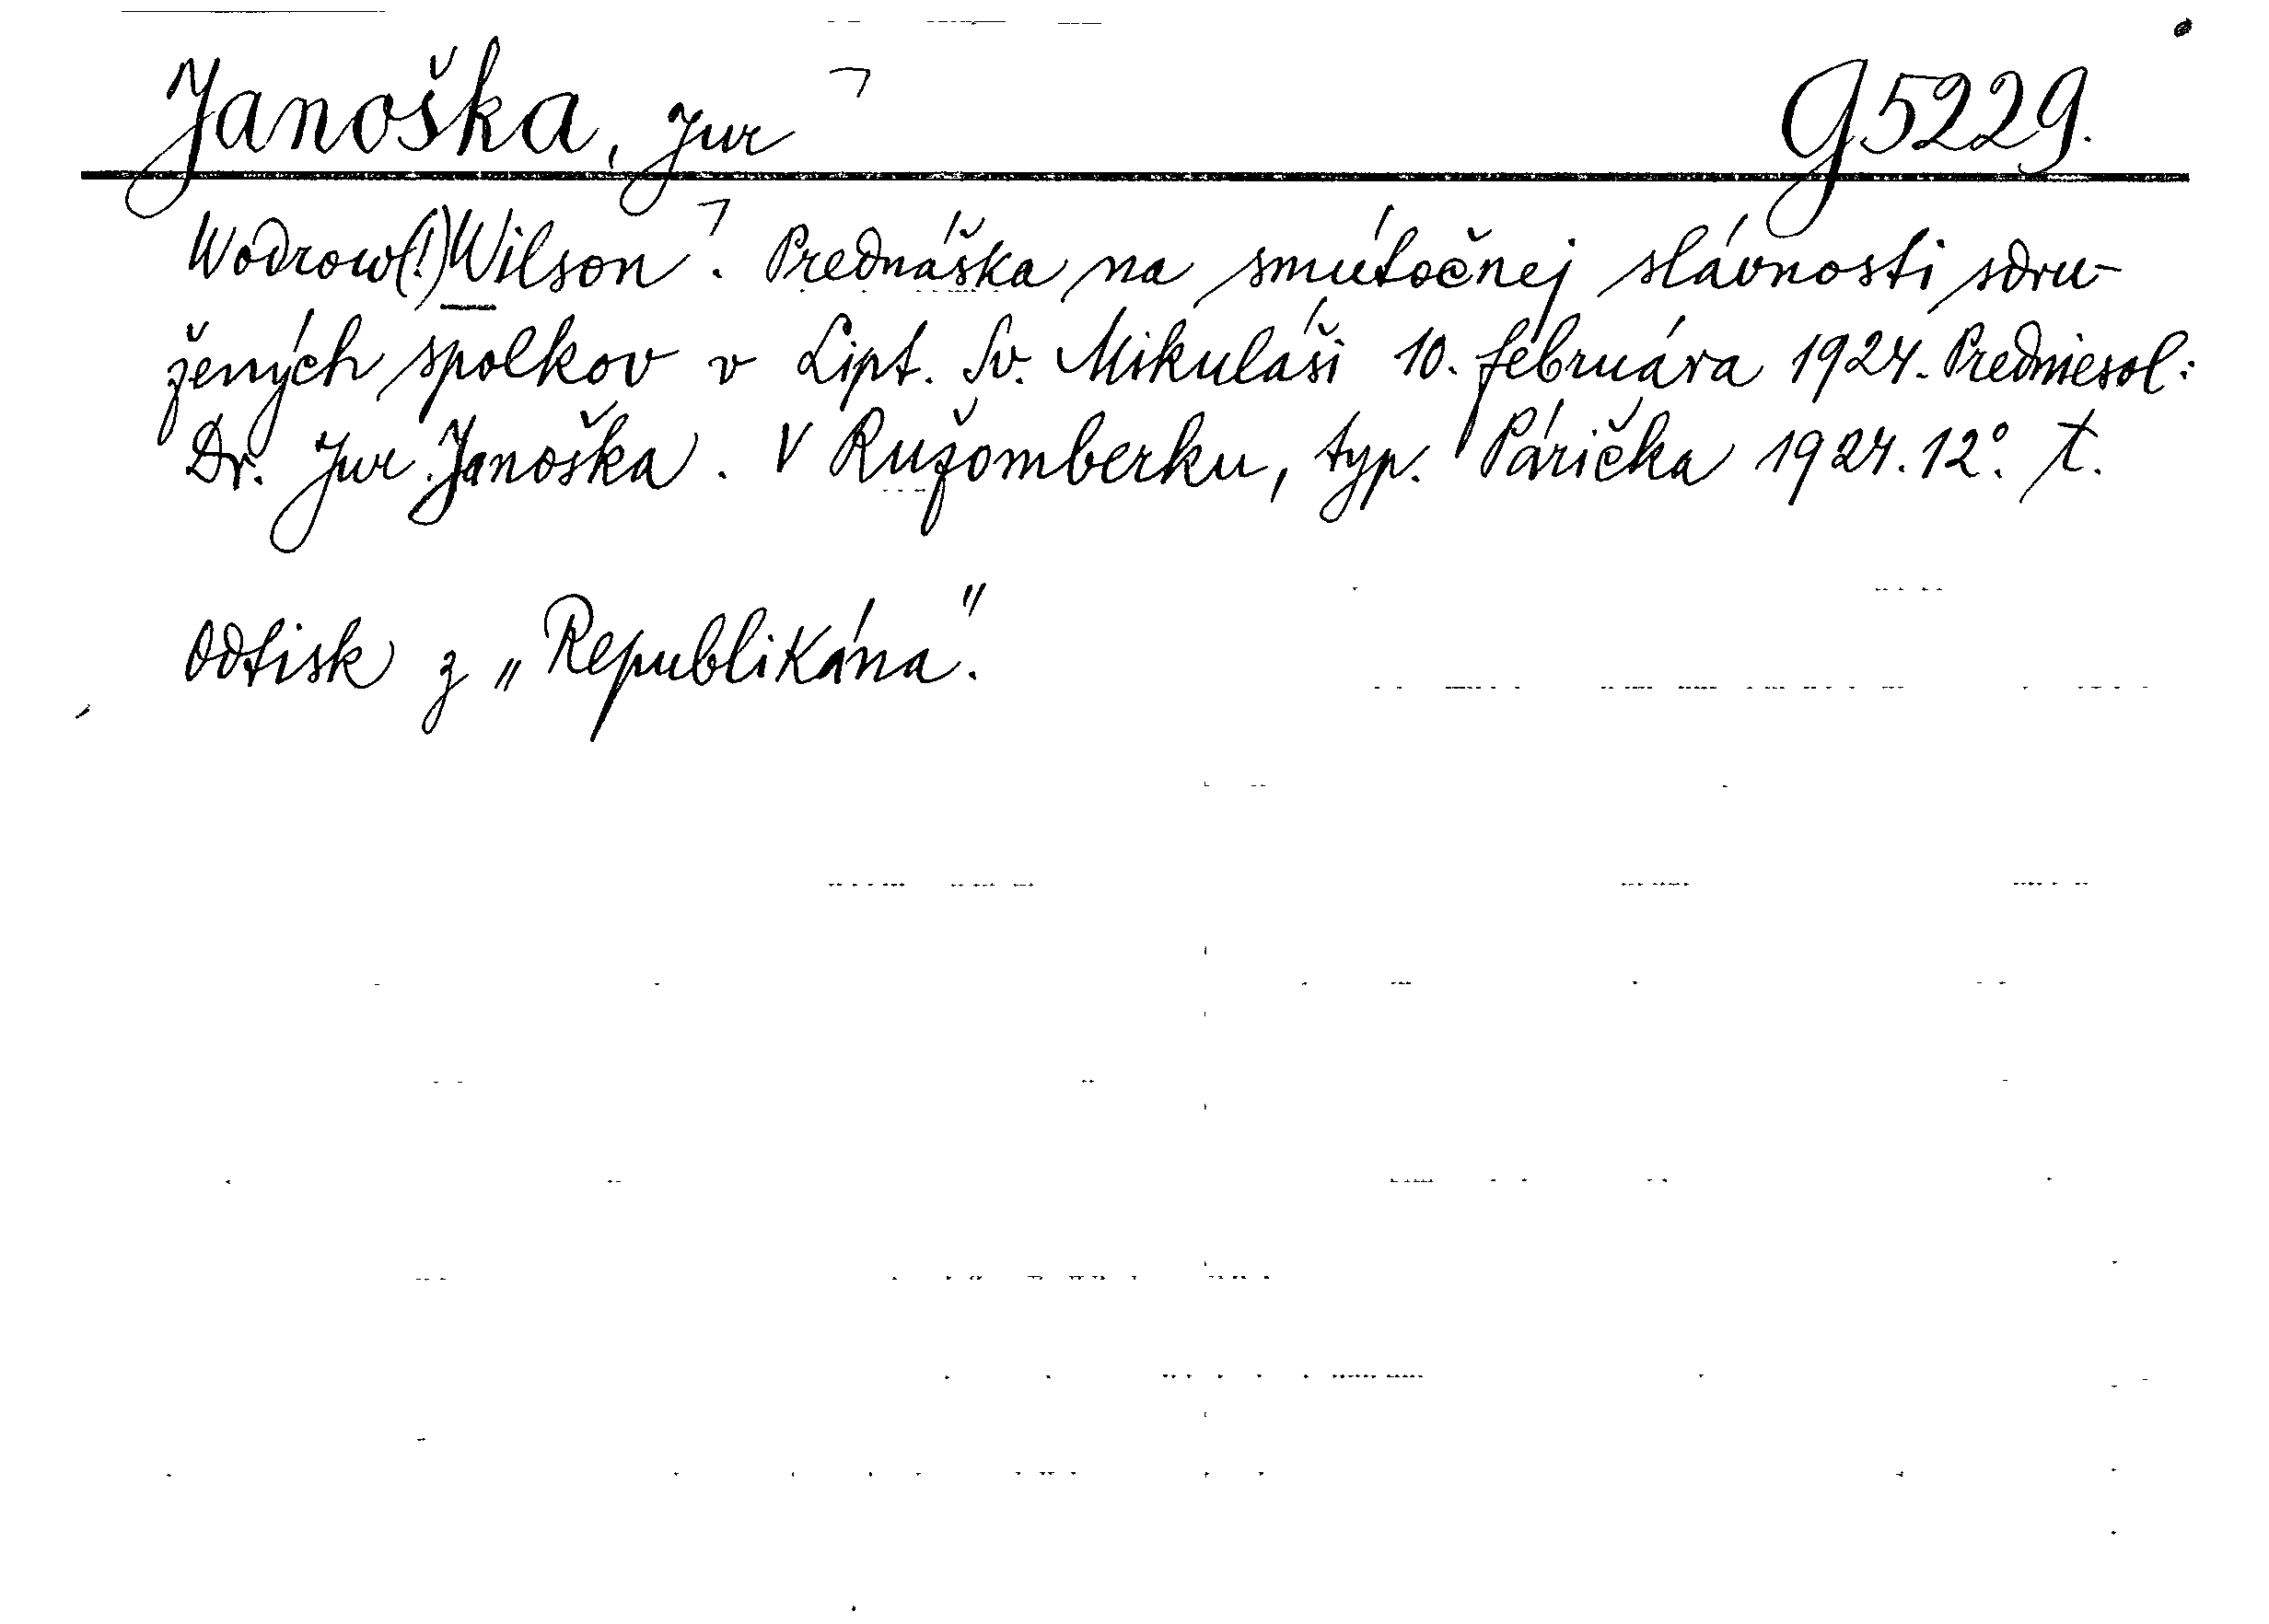 Janoška, Jur ㄱ G5229.
Wodrow(!) Wilson ㄱ. Prednáška na smútočnej slávnosti sdru-
žených spolkov v Lipt. Sv. Mikuláši 10. februára 1924. Predniesol:
Dr. Jur. Janoška. V Ružomberku, typ. Párička 1924. 12°. t.
Odtisk z „Republikána".